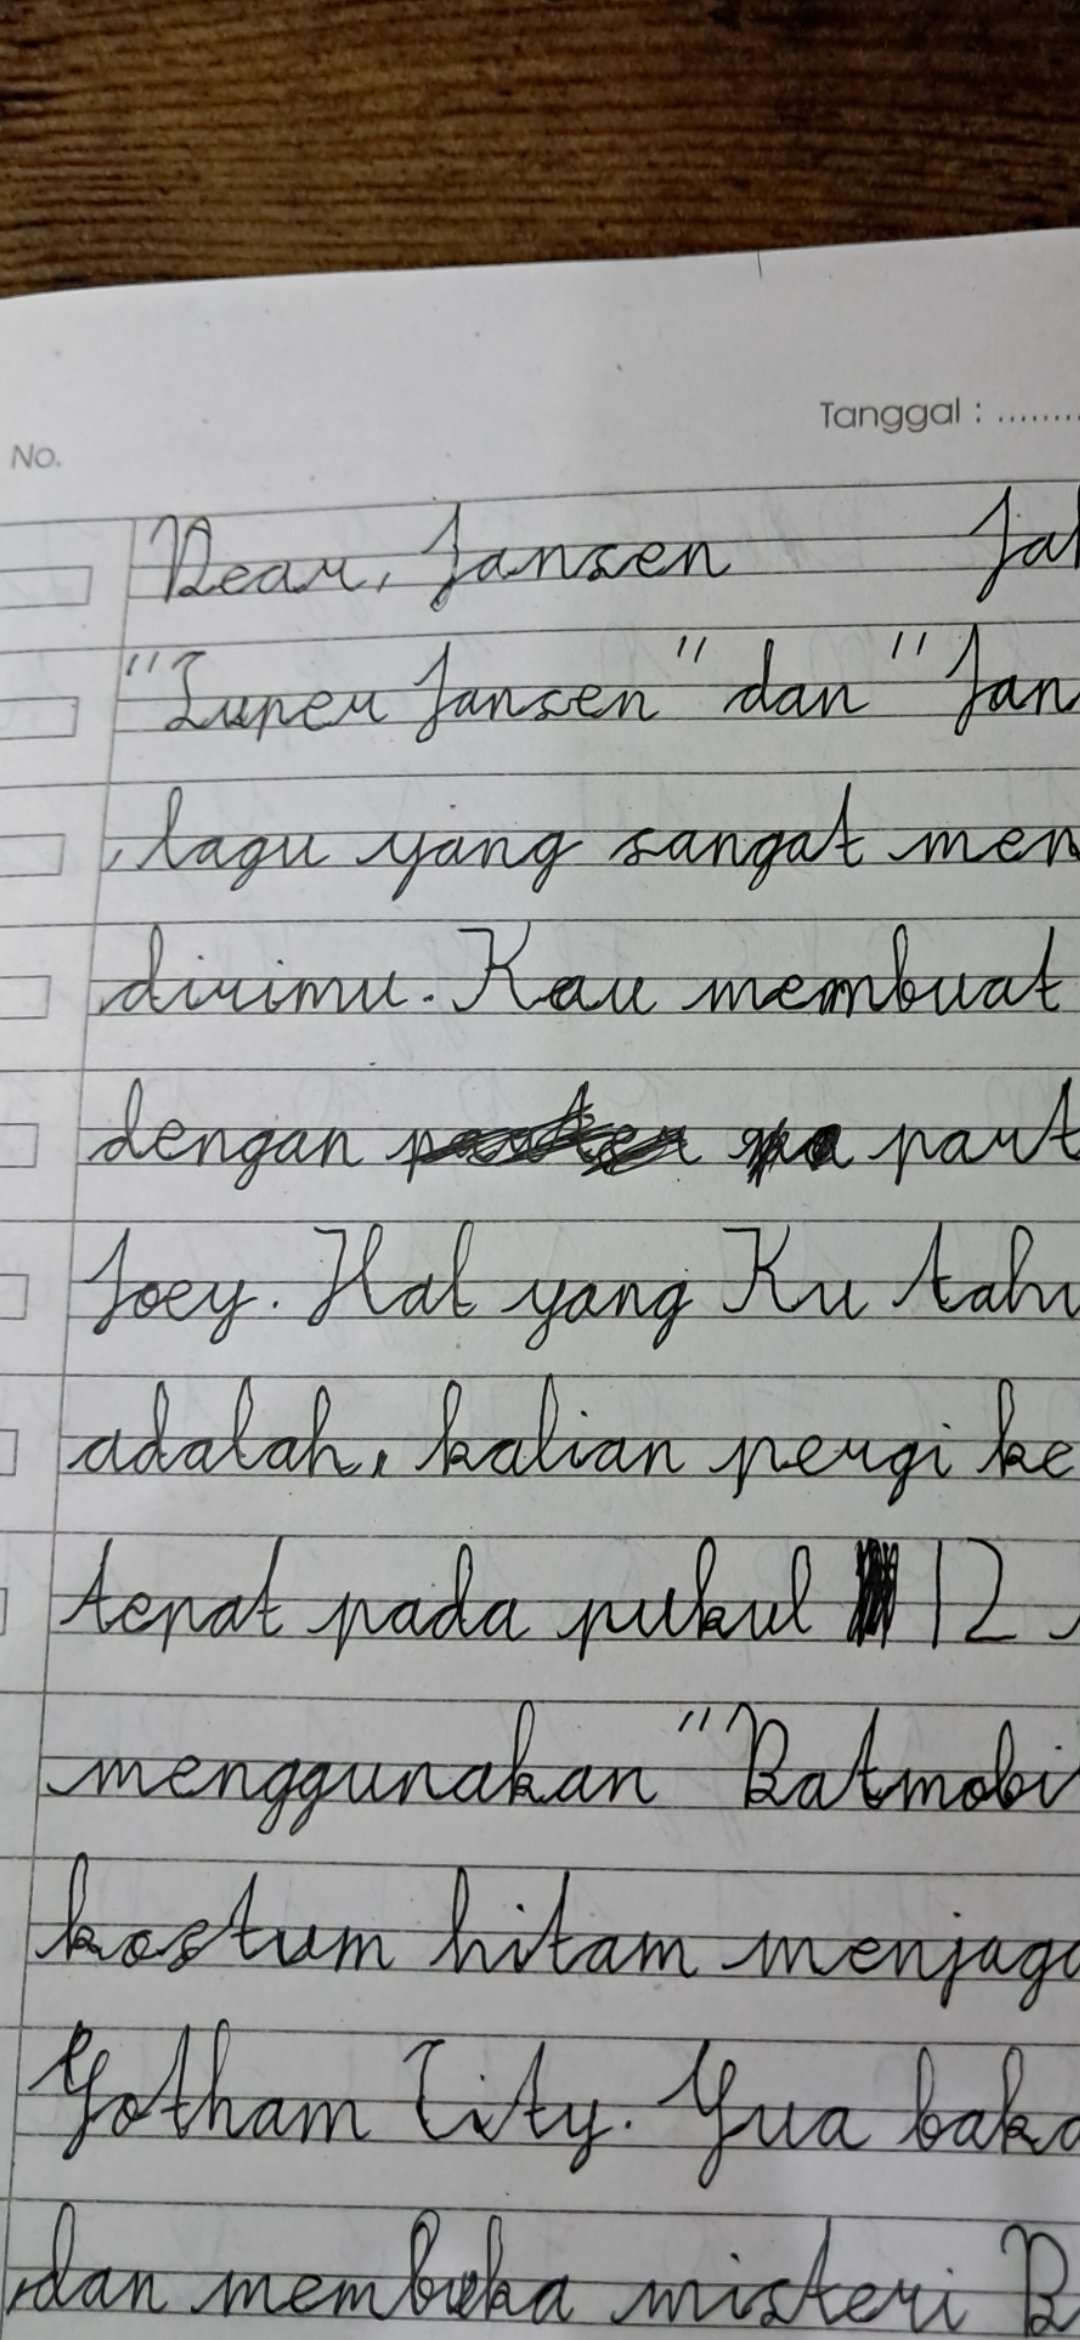 Tanggal : ........
No.
Dear, Jansen Jak
"Super Jansen" dan "Jan
lagu yang sangat men
dirimu. Kau membuat
dengan part
Joey. Hal yang Ku tahu
adalah, kalian pergi ke
tepat pada pukul 12
menggunakan "Batmobi
kostum hitam menjaga
Gotham City. Gua baka
dan membuka misteri B